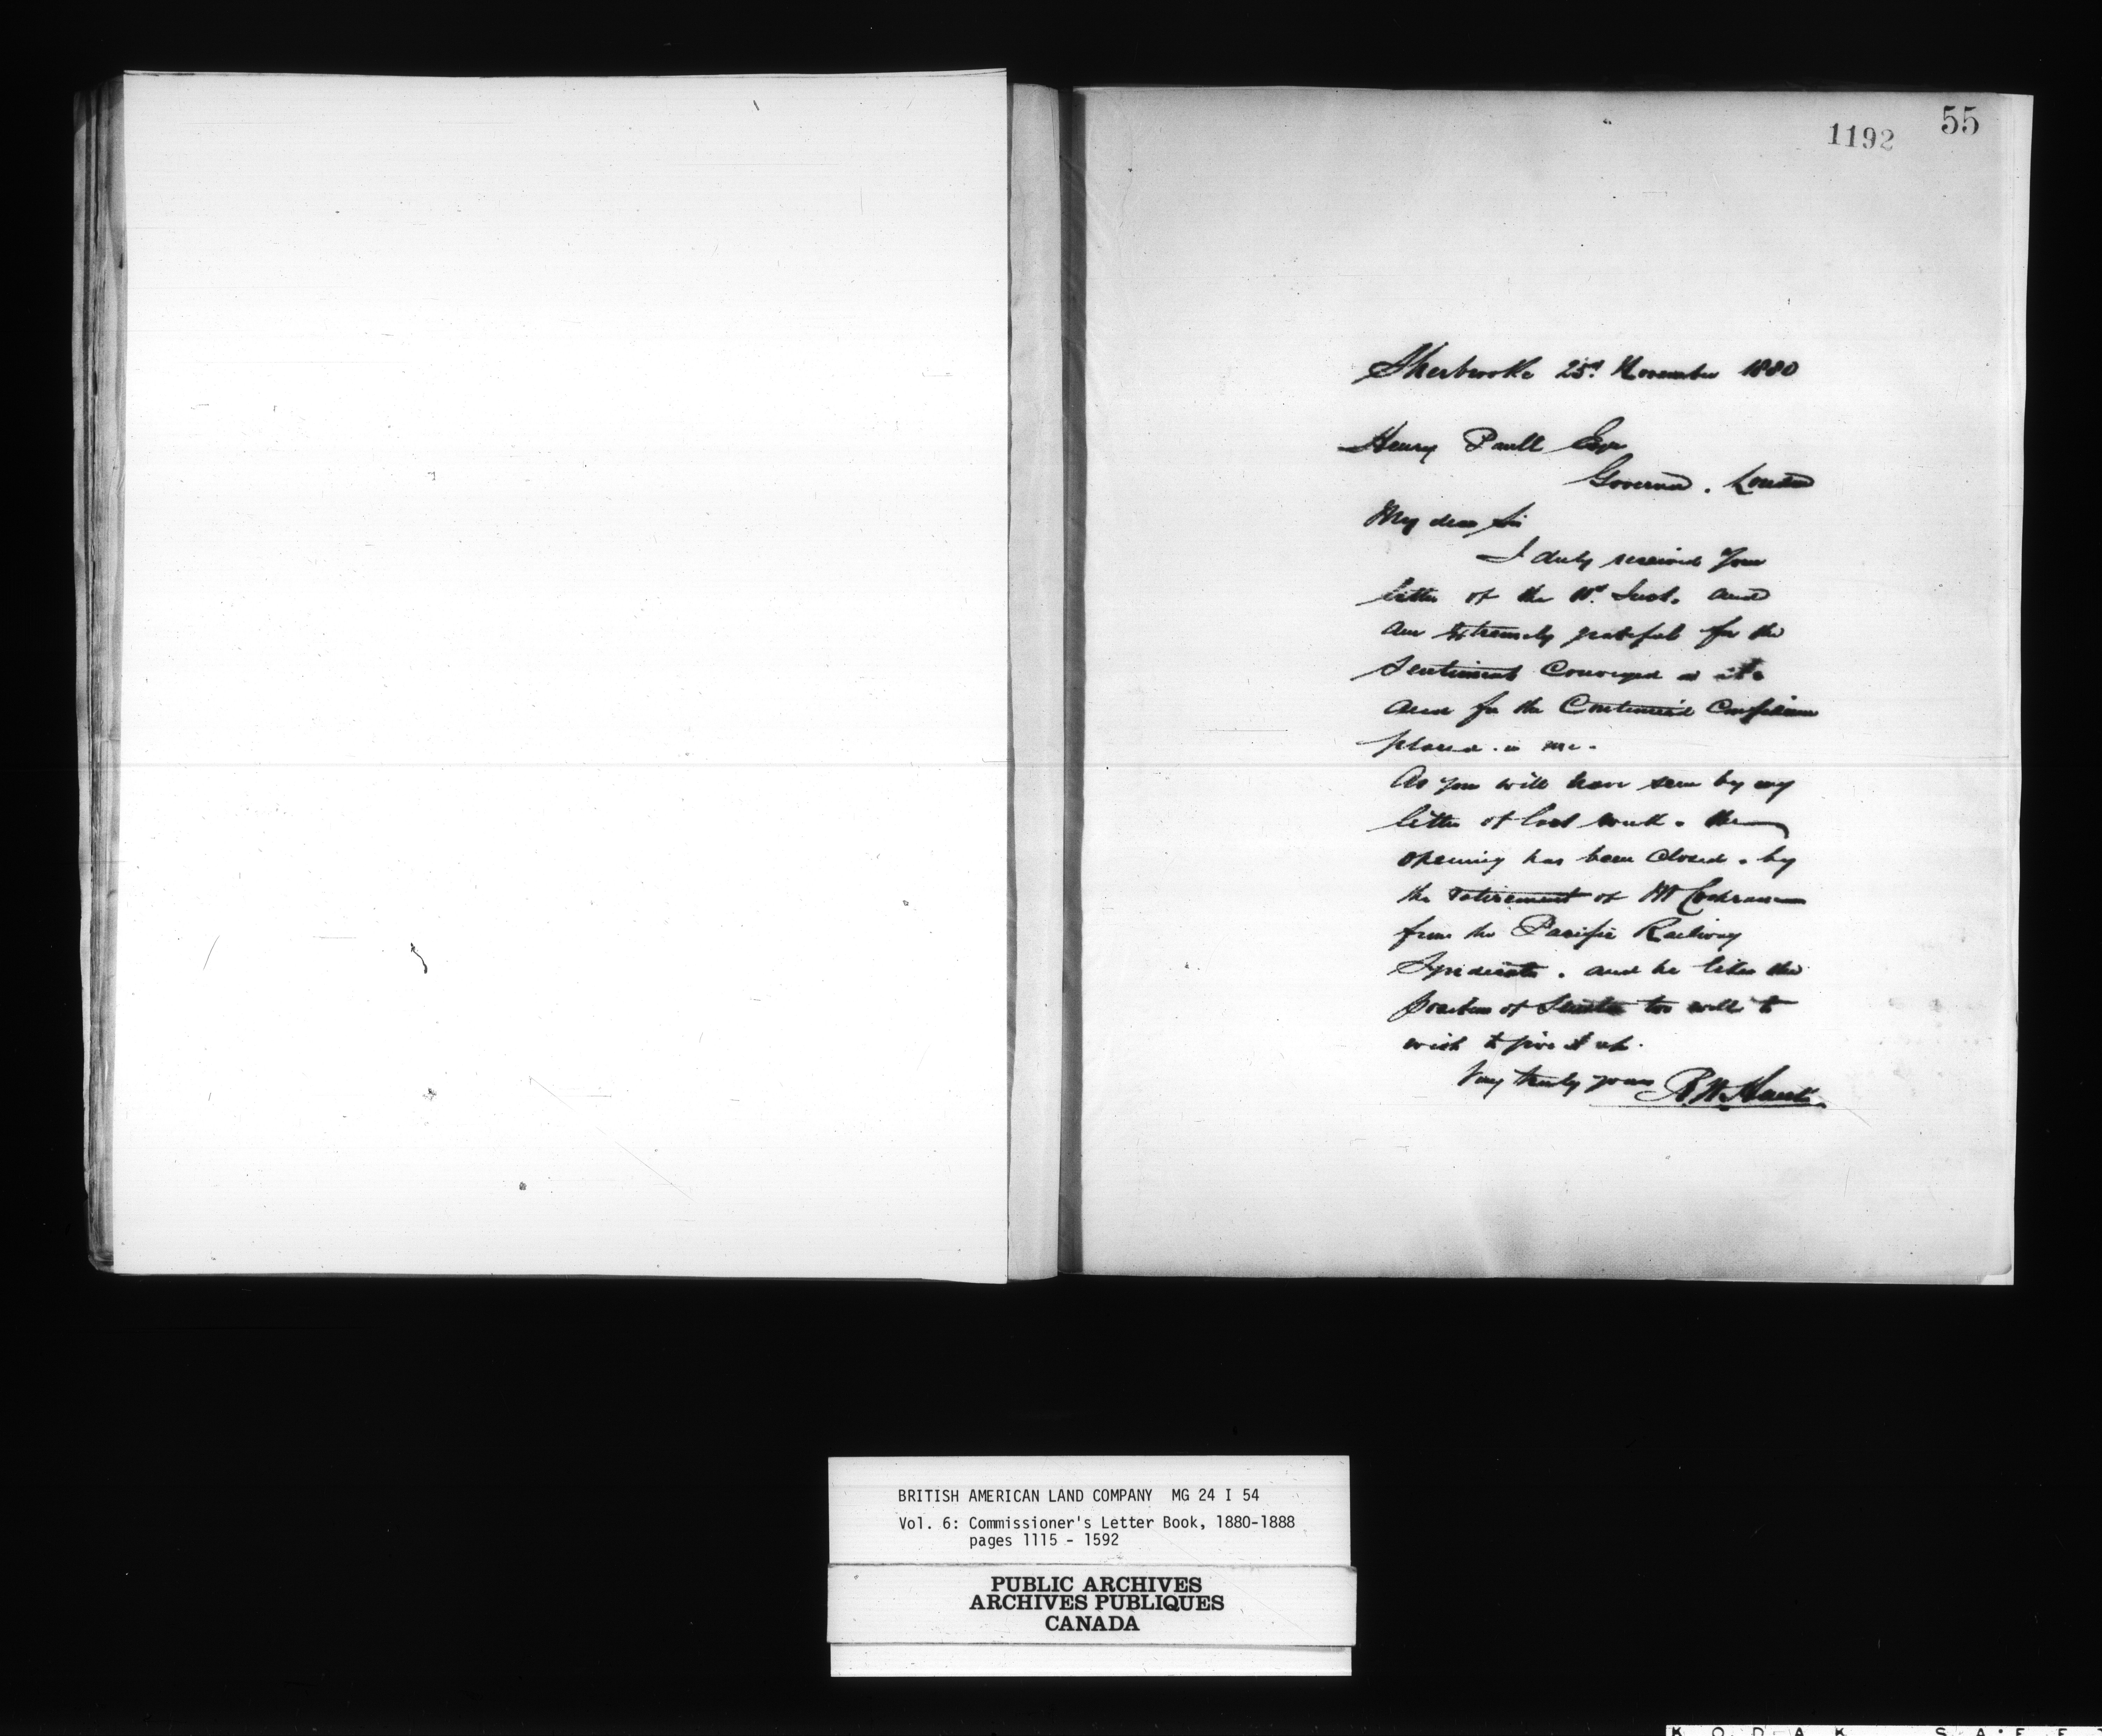 55
1192
Sherbrooke 25th November 1880
Henry Paull Esqr
Governor. London
My dear Sir
I duly received your
letter of the Inst. and
am extremely grateful for the
sentiments conveyed in it.
and for the Continued Confidence
placed in me.
As you will have seen by my
letter of last week. the
opening has been closed. by
the retirement of Mr Cochrane
from the Pacific Railway
Syndicate. and he likes the
position of Senator too well to
wish to give it up.
Very truly yours R.W. Heneker
BRITISH AMERICAN LAND COMPANY MG 24 I 54
Vol. 6: Commissioner's Letter Book, 1880-1888
pages 1115 - 1592
PUBLIC ARCHIVES
ARCHIVES PUBLIQUES
CANADA
KODAK SAFET